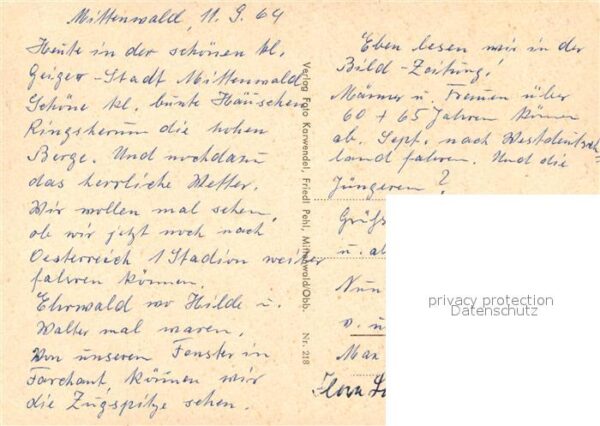 Mittenwald, 11.9.64
Heute in der schönen kl.
Geiger-Stadt Mittenwald
Schöne kl. bunte Häuschen
Ringsherum die hohen
Berge. Und noch dazu
das herrliche Wetter.
Wir wollen mal sehen,
ob wir jetzt noch nach
Oesterreich 1 Stadion weiter
fahren können.
Ehrwald wo Hilde u.
Walter mal waren.
Von unseren Fenster in
Farchant, können wir
die Zugspitze sehen.
Verlag Foto Karwendel, Friedl Pehl, Mittenwald/Obb. Nr. 218
Eben lesen wir in der
Bild-Zeitung!
Männer u. Frauen über
60 + 65 Jahren können
ab. Sept. nach Westdeutsch-
land fahren. Und die
Jüngeren?
Grüß
u. al
Nun
v. u
Max
Flora
privacy protection
Datenschutz